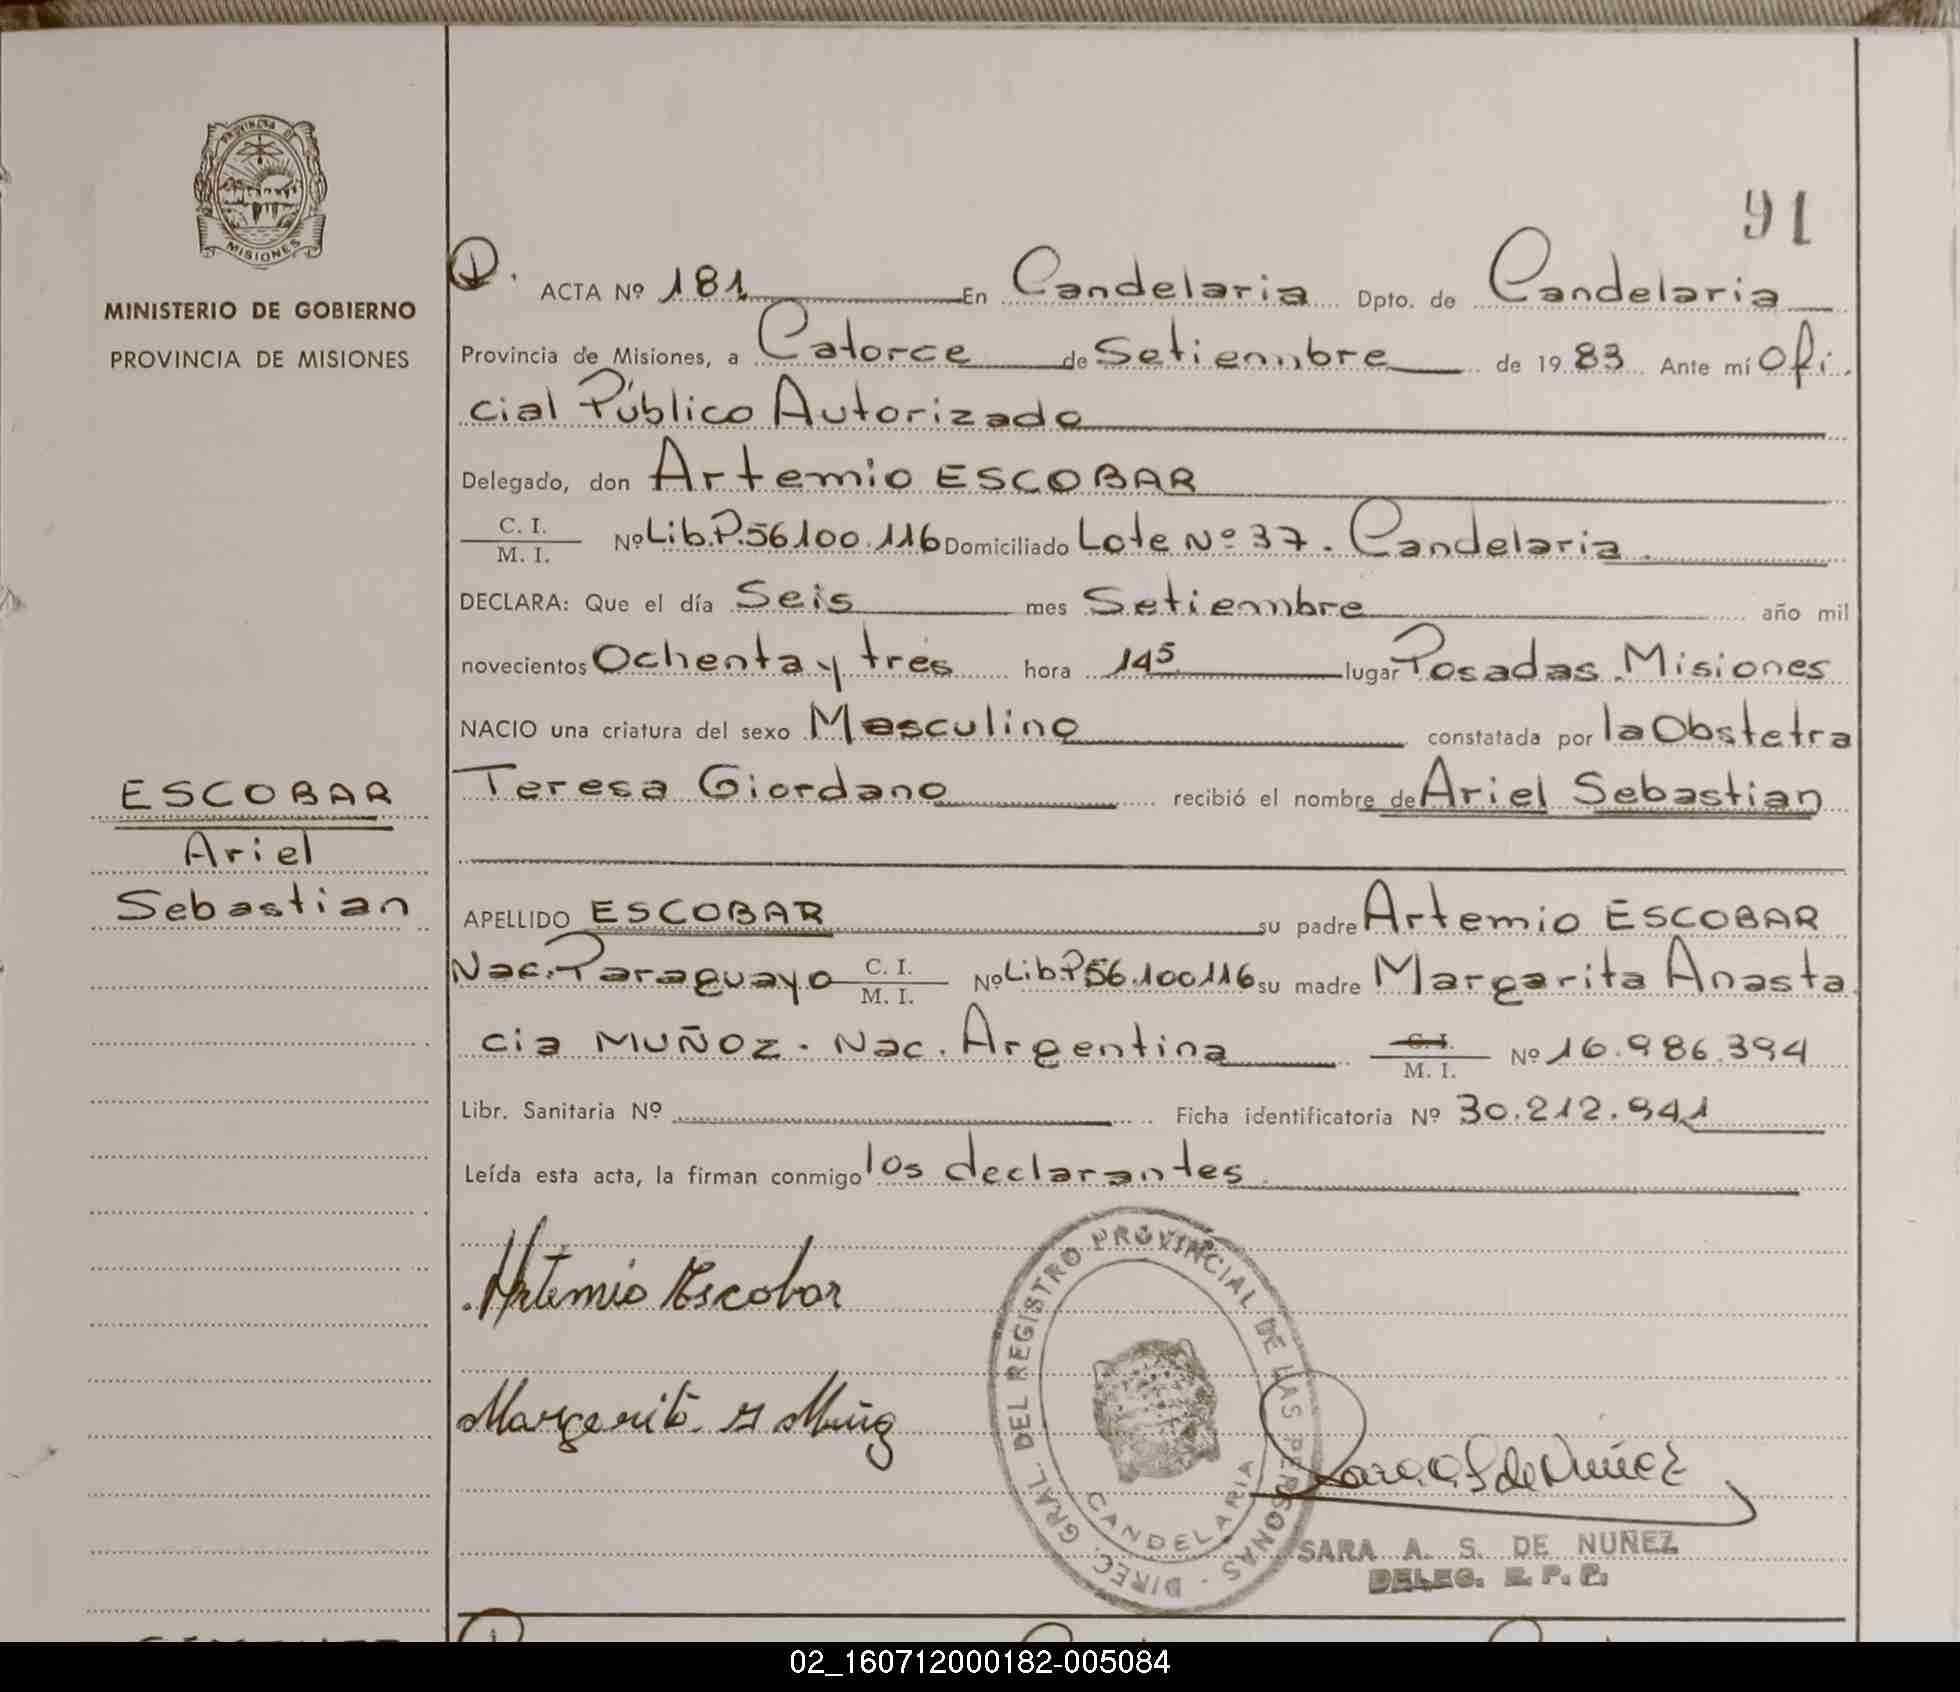 PROVINCIA DE
MISIONES
MINISTERIO DE GOBIERNO
PROVINCIA DE MISIONES
ESCOBAR
Ariel
Sebastian
91
ACTA Nº 181 En Candelaria Dpto. de Candelaria
Provincia de Misiones, a Catorce de Setiembre de 19 83 Ante mí Ofi
cial Público Autorizado
Delegado, don Artemio ESCOBAR
C. I.
M. I. Nº Lib.P.56.100.116 Domiciliado Lote Nº 37. Candelaria.
DECLARA: Que el día Seis mes Setiembre año mil
novecientos Ochenta y tres hora 145 lugar Posadas. Misiones
NACIO una criatura del sexo Masculino constatada por la Obstetra
Teresa Giordano recibió el nombre de Ariel Sebastian
APELLIDO ESCOBAR su padre Artemio ESCOBAR
Nac. Paraguayo C. I. M. I. Nº Lib.P56.100116 su madre Margarita Anasta
cia MUÑOZ. Nac. Argentina C. I. M. I. Nº 16.986.394
Libr. Sanitaria Nº Ficha identificatoria Nº 30.212.941
Leída esta acta, la firman conmigo los declarantes.
Artemio Escobar
DIREC. GRAL. DEL REGISTRO PROVINCIAL DE LAS PERSONAS
CANDELARIA
SARA A. S. DE NUÑEZ
DELEG. R. P. P.
02_160712000182-005084